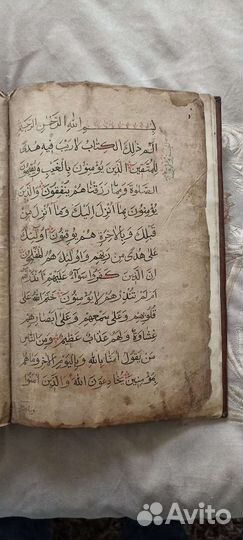 بسم الله الرحمن الرحيم
الم ذلك الكتاب لا ريب فيه هدى
للمتقين الذين يؤمنون بالغيب ويقيمون
الصلوة ومما رزقناهم ينفقون والذين
يؤمنون بما أنزل إليك وما أنزل من
قبلك وبالآخرة هم يوقنون أولئك
على هدى من ربهم وأولئك هم المفلحون
إن الذين كفروا سواء عليهم ءأنذرتهم
أم لم تنذرهم لا يؤمنون ختم الله على
قلوبهم وعلى سمعهم وعلى أبصارهم
غشاوة ولهم عذاب عظيم ومن الناس
من يقول آمنا بالله وباليوم الآخر وما هم
بمؤمنين يخادعون الله والذين آمنوا
Avito